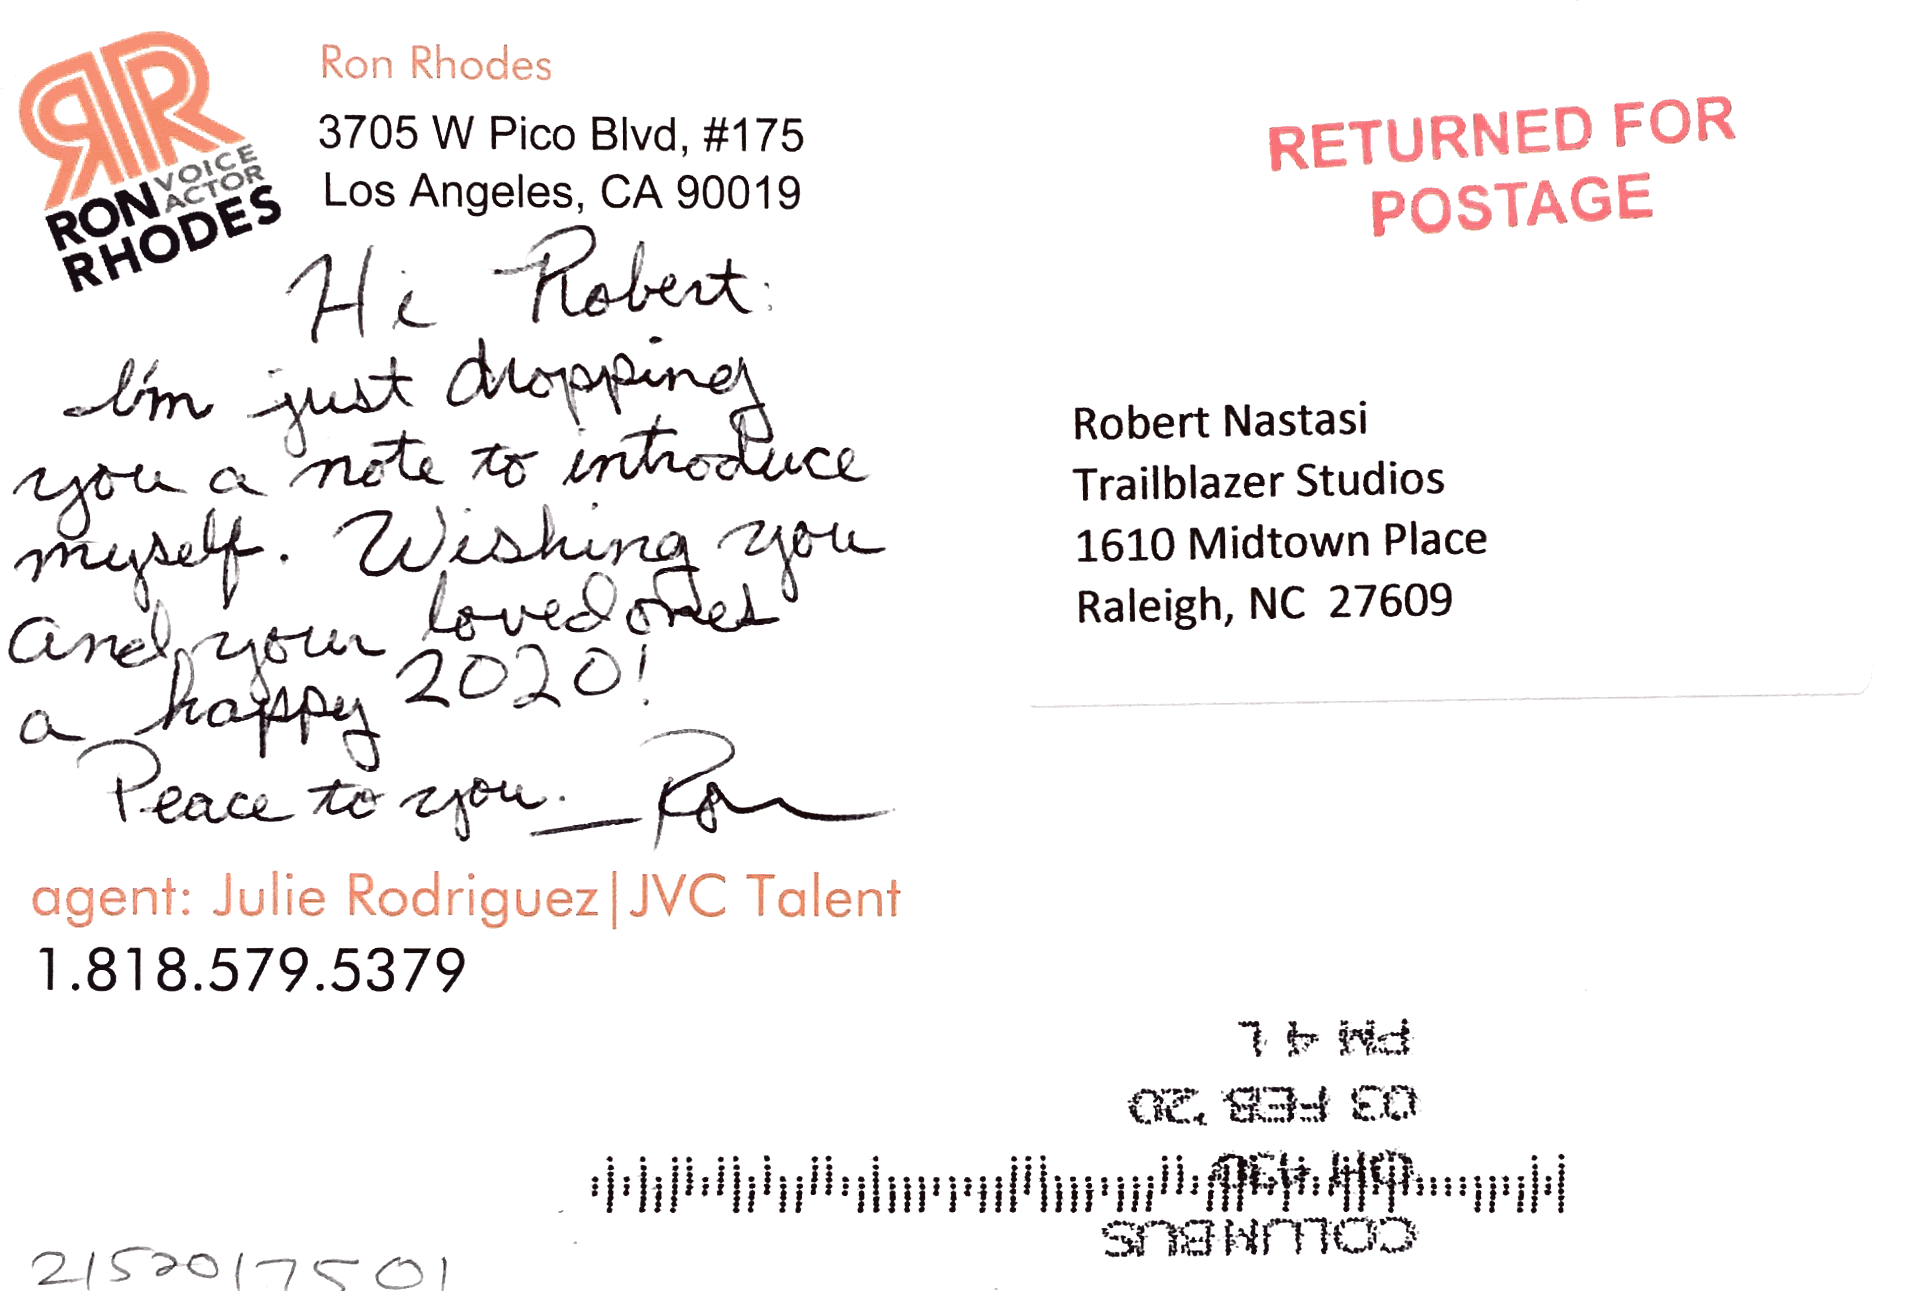 RON VOICE
ACTOR
RHODES
Ron Rhodes
3705 W Pico Blvd, #175
Los Angeles, CA 90019
RETURNED FOR
POSTAGE
Hi Robert:
I'm just dropping
you a note to introduce
myself. Wishing you
and your loved ones
a happy 2020!
Peace to you. — Ron
agent: Julie Rodriguez|JVC Talent
1.818.579.5379
Robert Nastasi
Trailblazer Studios
1610 Midtown Place
Raleigh, NC 27609
COLUMBUS
OH 430
03 FEB '20
PM 4 L
2152017501